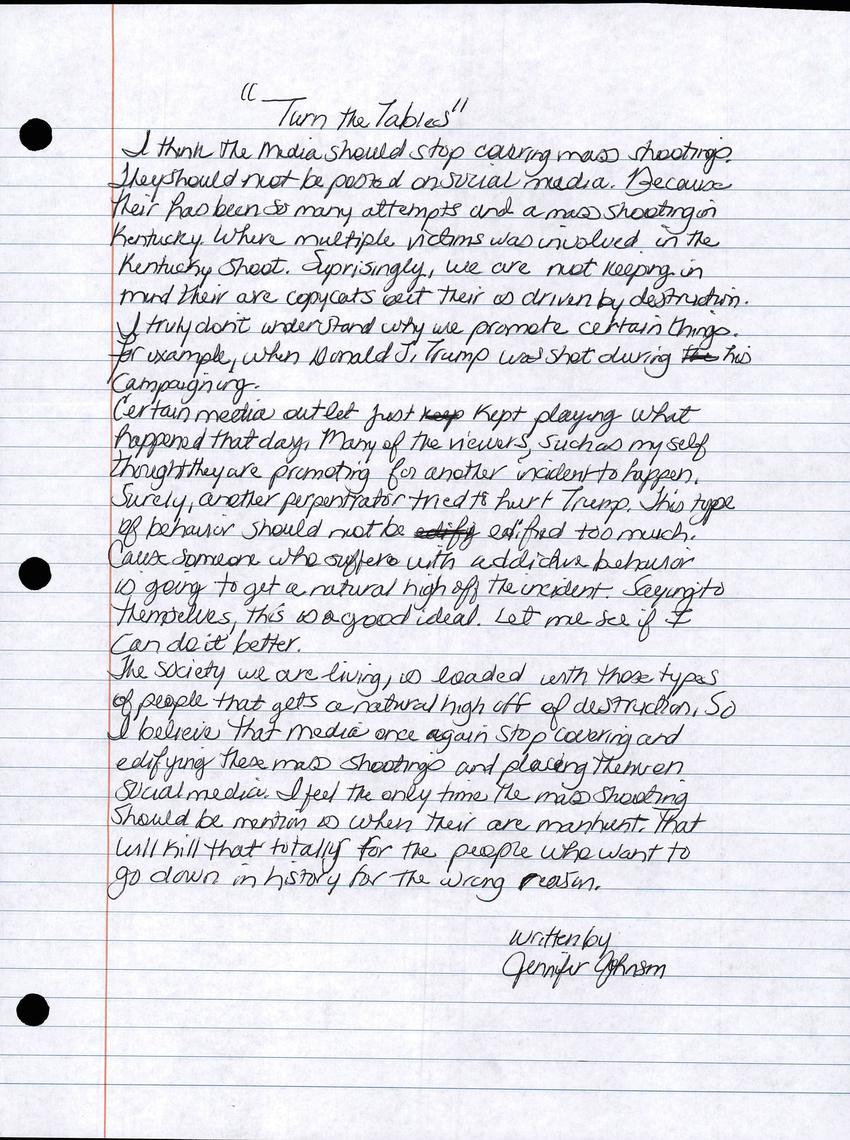 "Turn the Tables"
I think the Media should stop covering mass shootings.
They should not be posted on social media. Because
their has been so many attempts and a mass shooting in
Kentucky. Where multiple victims was involved in the
Kentucky shoot. Suprisingly, we are not keeping in
mind their are copycats out their as driven by destruction.
I truly don't understand why we promote certain things.
For example, when Donald J. Trump was shot during the his
Campaigning.
Certain media outlet just keep kept playing what
happened that day. Many of the viewers, such as my self
thought they are promoting for another incident to happen.
Surely, another perpentrator tried to hurt Trump. This type
of behavior should not be edify edified too much.
Cause someone who suffers with addictive behavior
is going to get a natural high off the incident. Saying to
themselves, this is a good ideal. Let me see if I
Can do it better.
The society we are living, is loaded with those types
of people that gets a natural high off of destruction. So
I believe that media once again stop covering and
edifying these mass shootings and placing them on
social media. I feel the only time the mass shooting
should be mention is when their are manhunt. That
will kill that totally for the people who want to
go down in history for the wrong reason.
written by
Jennifer Johnson